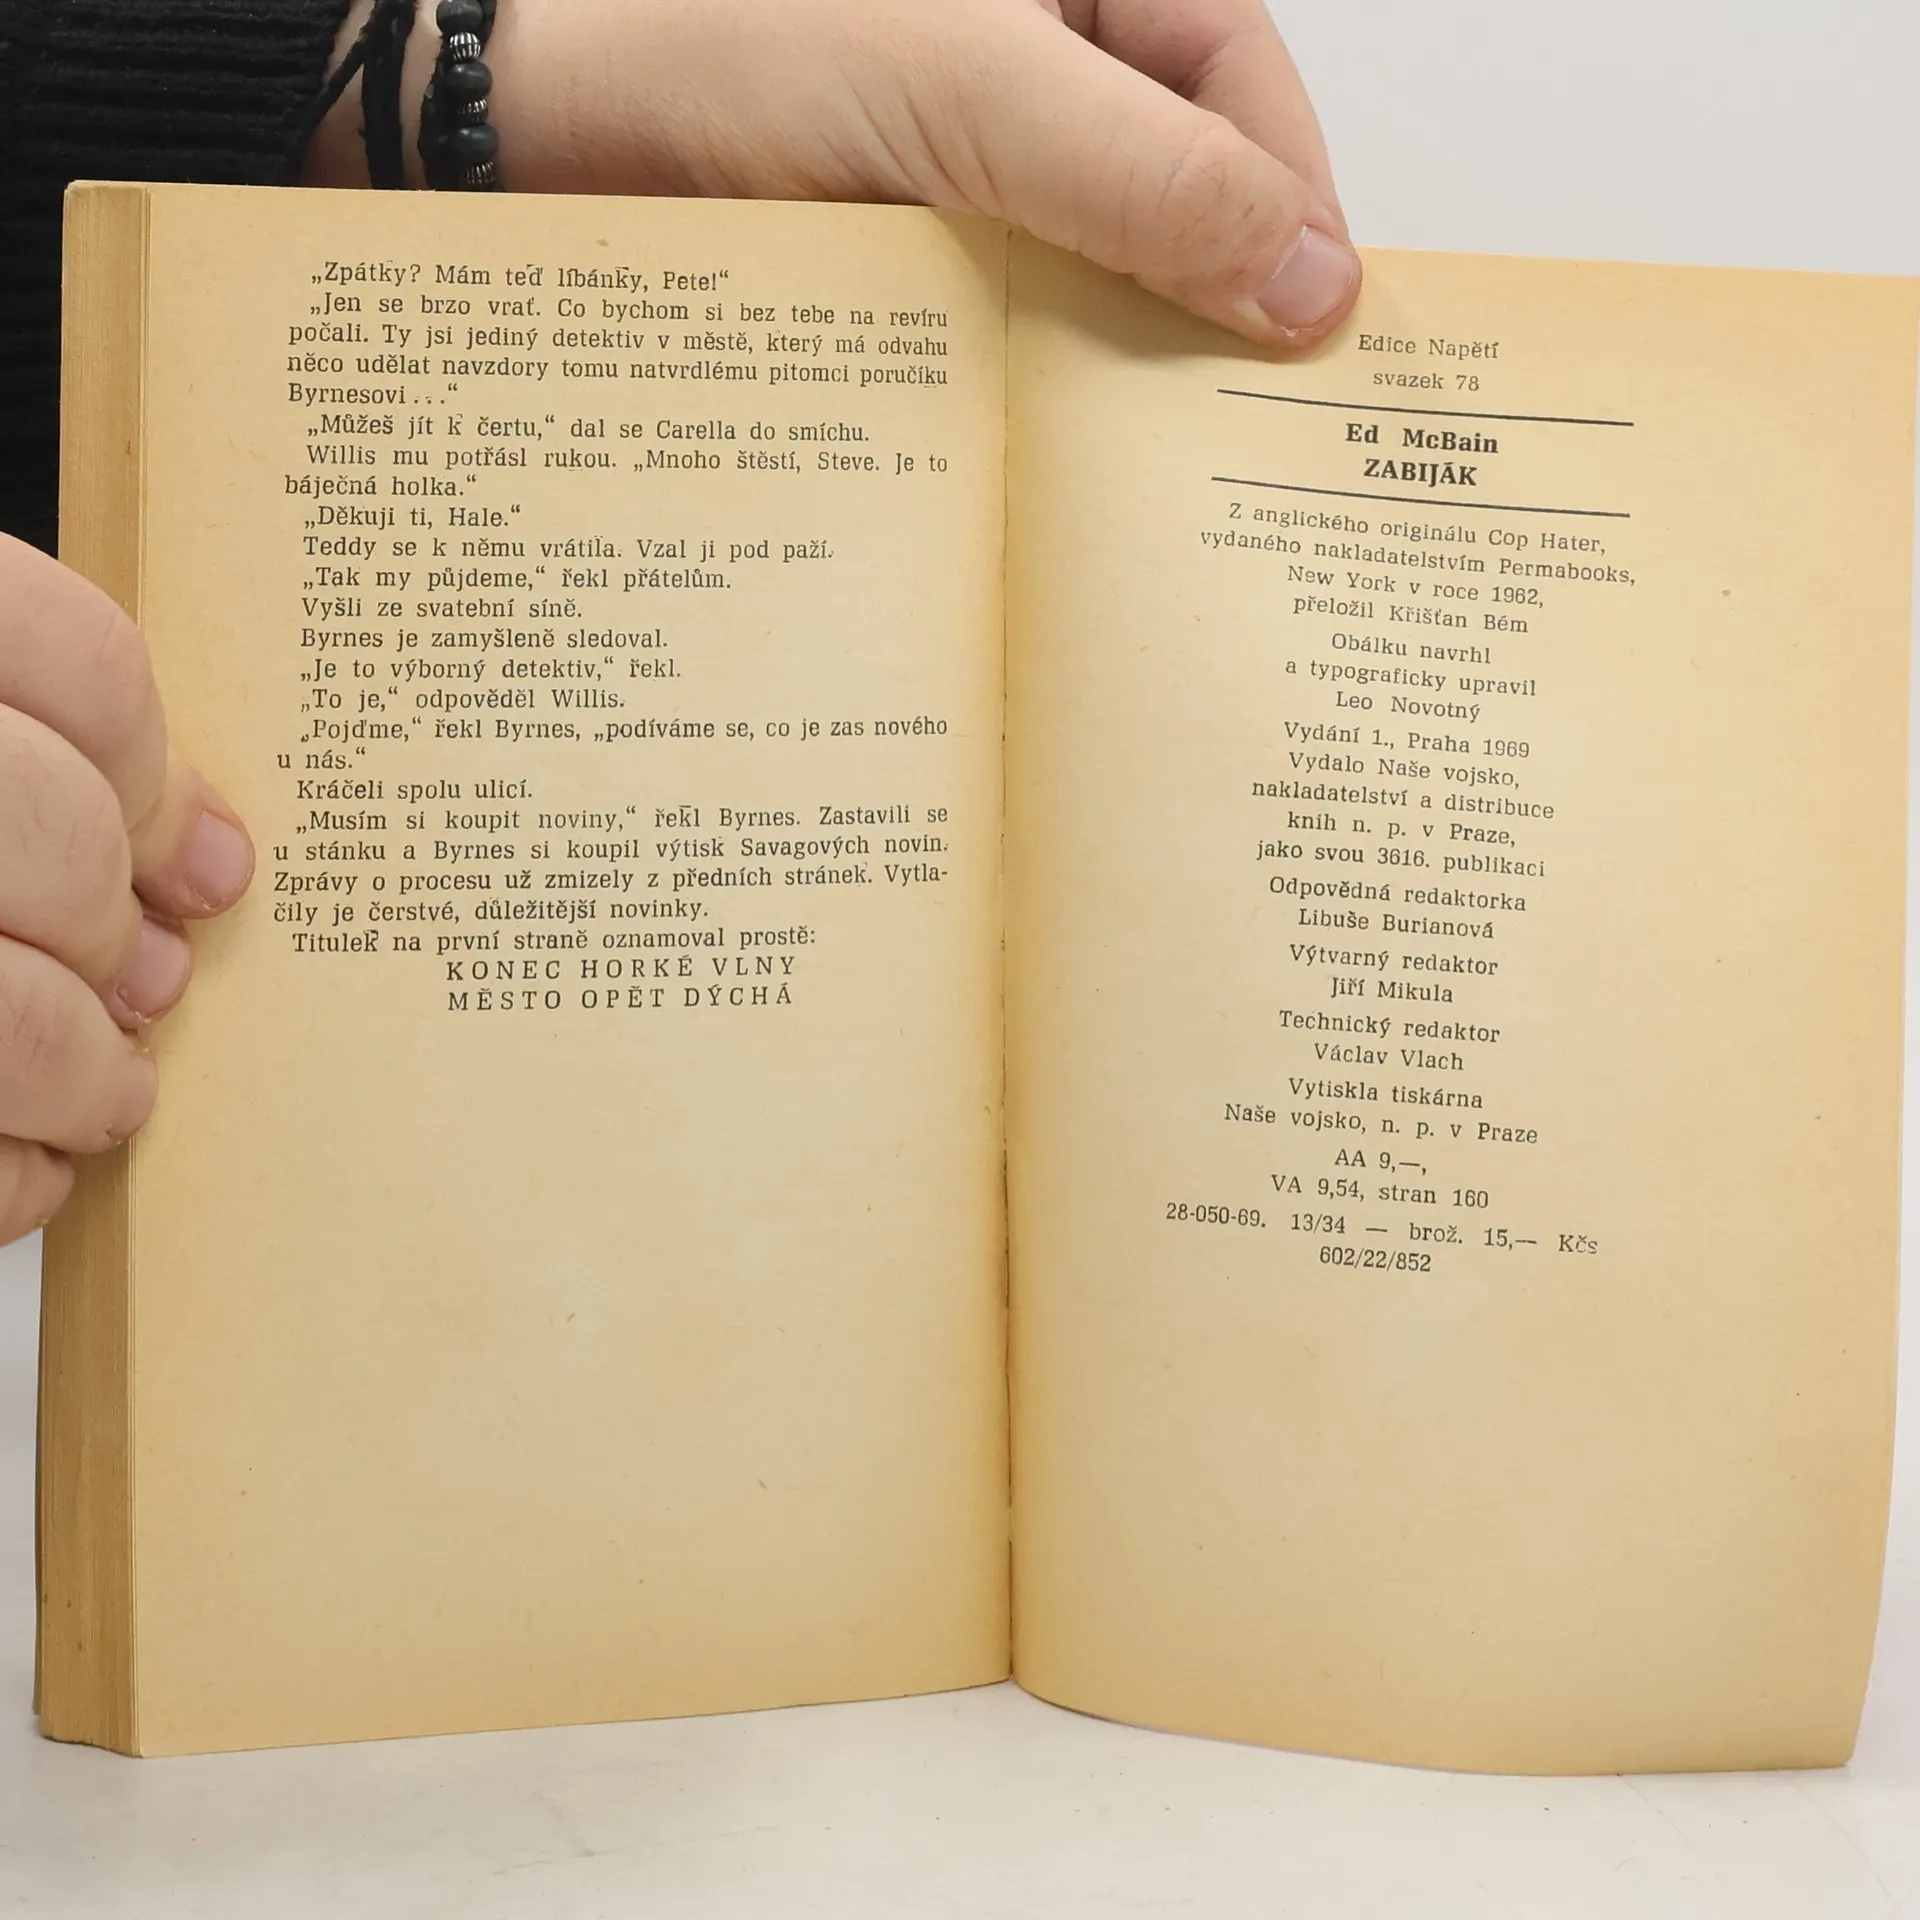 „Zpátky? Mám teď líbánky, Pete!“
„Jen se brzo vrať. Co bychom si bez tebe na revíru
počali. Ty jsi jediný detektiv v městě, který má odvahu
něco udělat navzdory tomu natvrdlému pitomci poručíku
Byrnesovi...“
„Můžeš jít k čertu,“ dal se Carella do smíchu.
Willis mu potřásl rukou. „Mnoho štěstí, Steve. Je to
báječná holka.“
„Děkuji ti, Hale.“
Teddy se k němu vrátila. Vzal ji pod paží.
„Tak my půjdeme,“ řekl přátelům.
Vyšli ze svatební síně.
Byrnes je zamyšleně sledoval.
„Je to výborný detektiv,“ řekl.
„To je,“ odpověděl Willis.
„Pojďme,“ řekl Byrnes, „podíváme se, co je zas nového
u nás.“
Kráčeli spolu ulicí.
„Musím si koupit noviny,“ řekl Byrnes. Zastavili se
u stánku a Byrnes si koupil výtisk Savagových novin.
Zprávy o procesu už zmizely z předních stránek. Vytla-
čily je čerstvé, důležitější novinky.
Titulek na první straně oznamoval prostě:
KONEC HORKÉ VLNY
MĚSTO OPĚT DÝCHÁ
Edice Napětí
svazek 78
Ed McBain
ZABIJÁK
Z anglického originálu Cop Hater,
vydaného nakladatelstvím Permabooks,
New York v roce 1962,
přeložil Křišťan Bém
Obálku navrhl
a typograficky upravil
Leo Novotný
Vydání 1., Praha 1969
Vydalo Naše vojsko,
nakladatelství a distribuce
knih n. p. v Praze,
jako svou 3616. publikaci
Odpovědná redaktorka
Libuše Burianová
Výtvarný redaktor
Jiří Mikula
Technický redaktor
Václav Vlach
Vytiskla tiskárna
Naše vojsko, n. p. v Praze
AA 9,—,
VA 9,54, stran 160
28-050-69. 13/34 — brož. 15,— Kčs
602/22/852